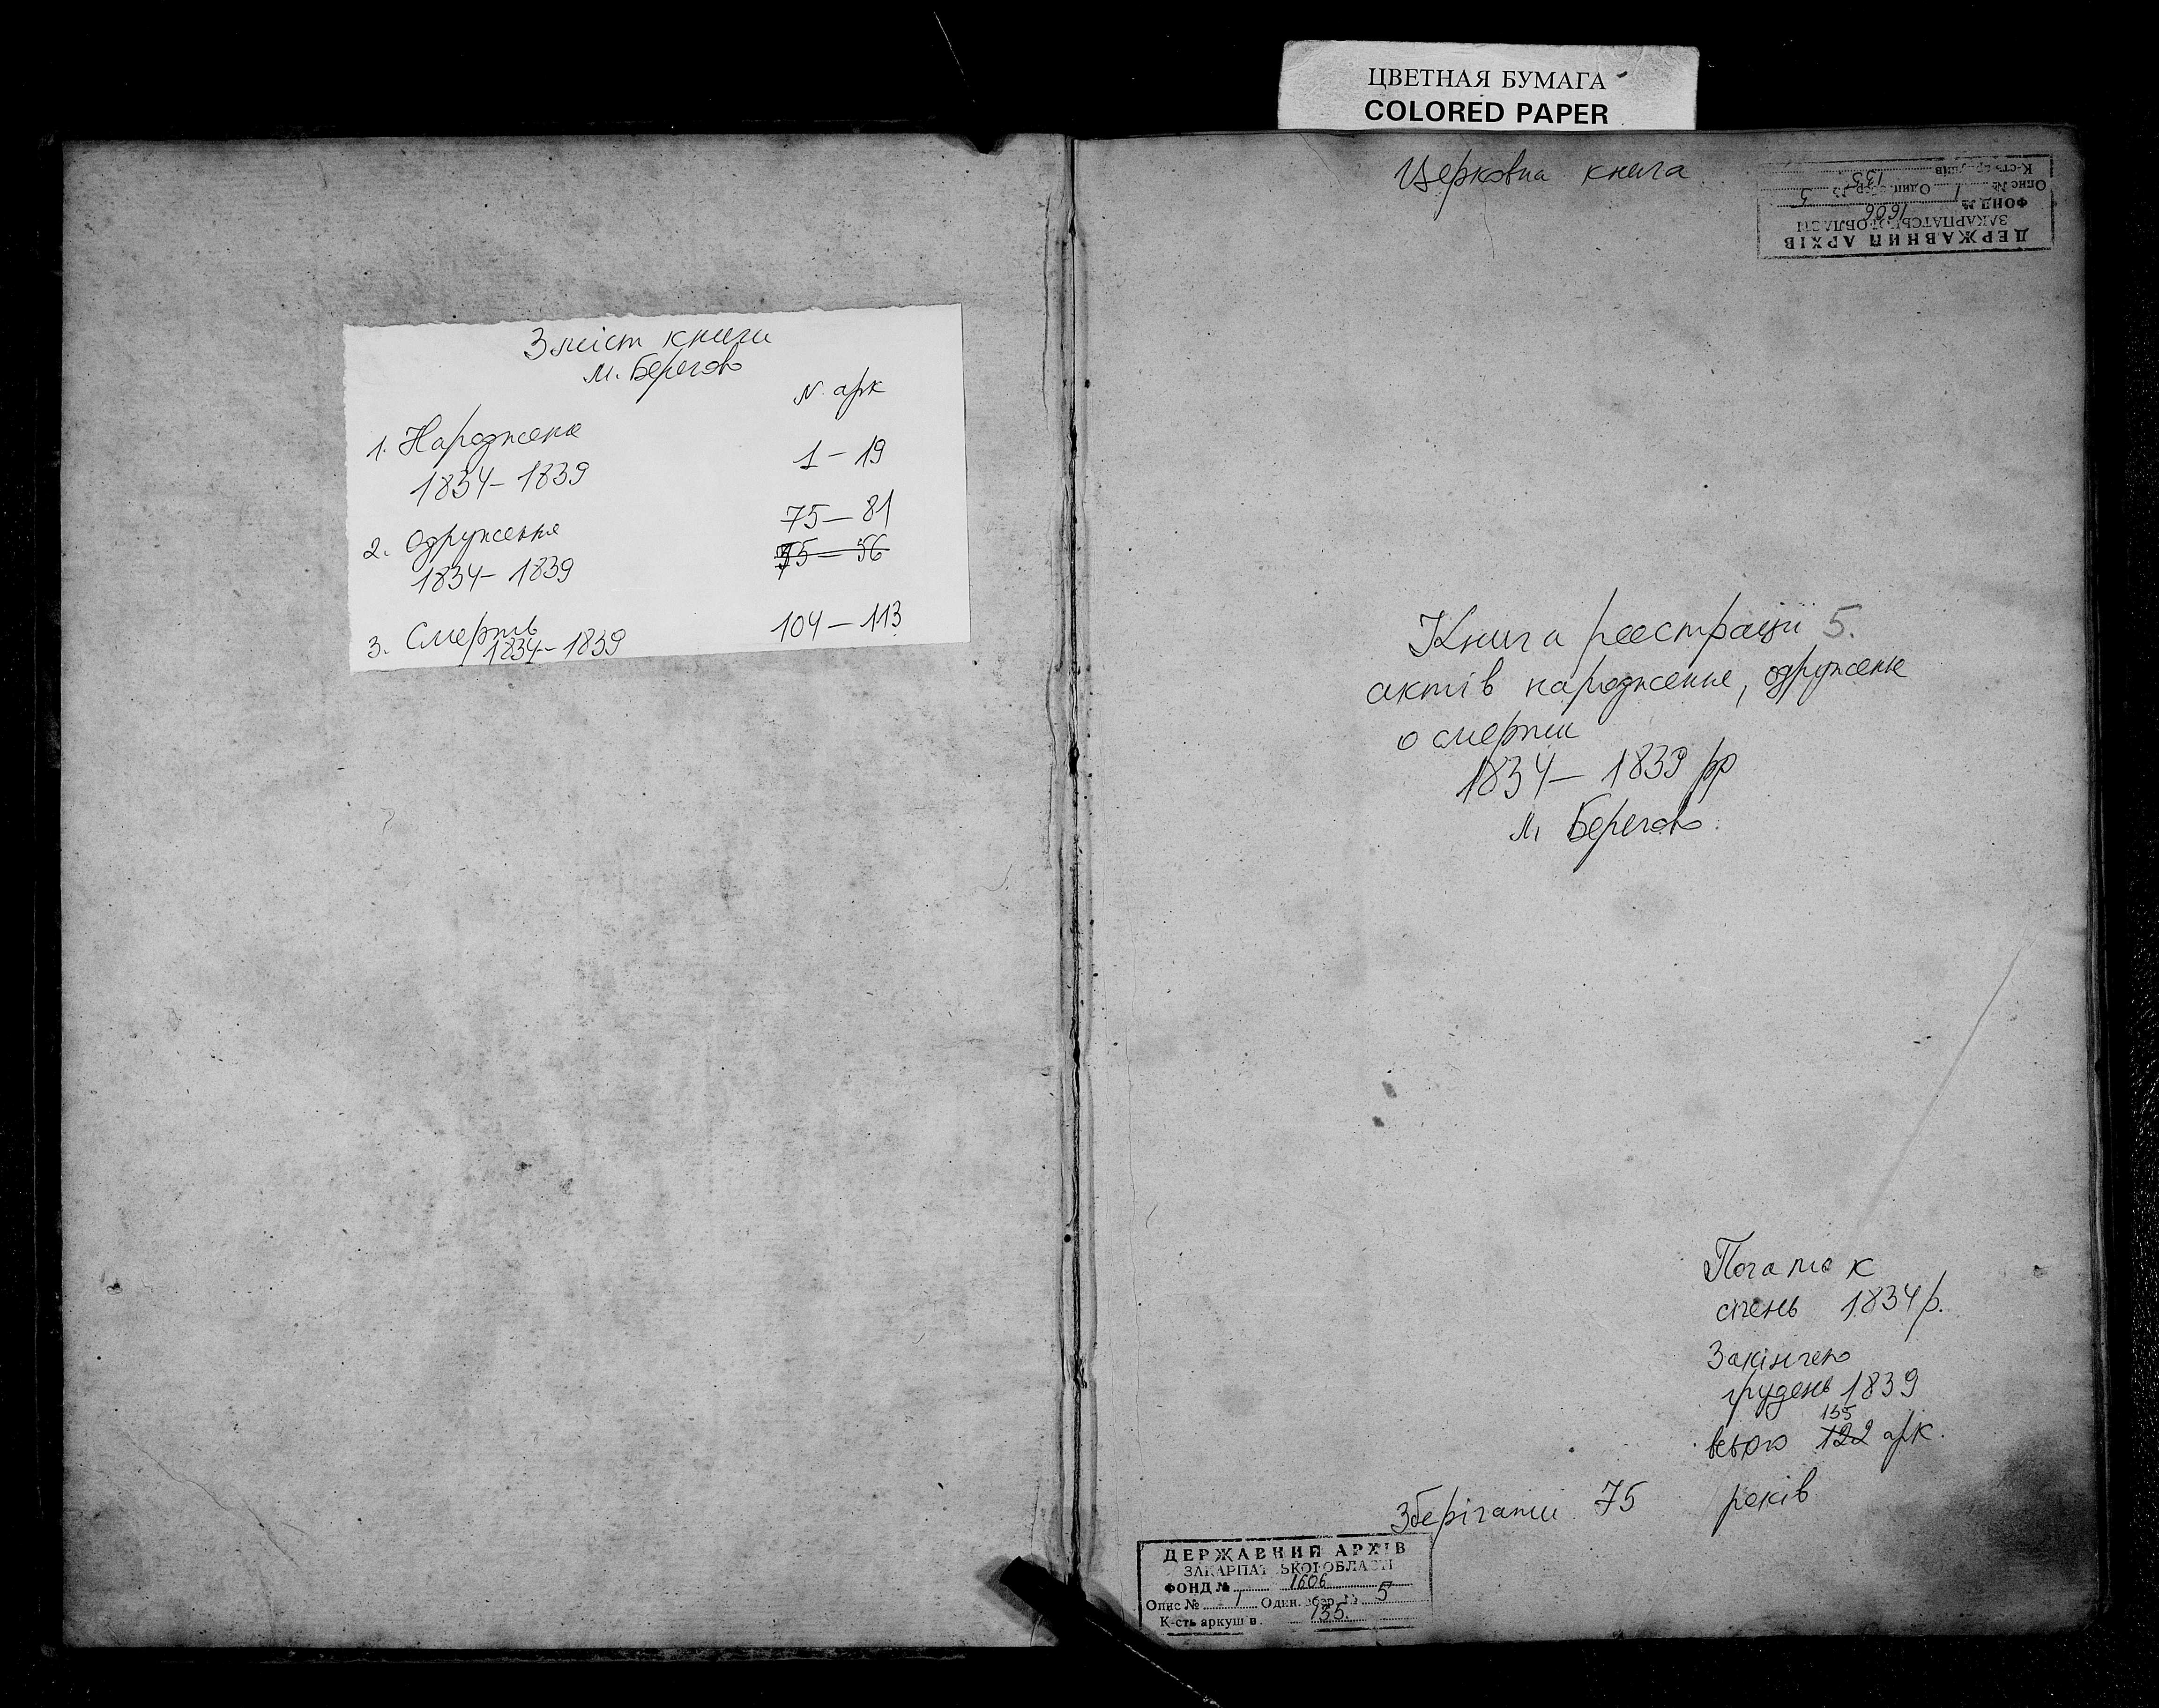 ЦВЕТНАЯ БУМАГА
COLORED PAPER
Зміст книги
м. Берегово
N. арк
1. Народження
1834 – 1839
1 – 19
2. Одруження
1834 – 1839
75 – 81
75 – 56
3. Смерть
1834 – 1839
104 – 113
Церковна книга
ДЕРЖАВНИЙ АРХІВ
ЗАКАРПАТСЬКОЇ ОБЛАСТІ
ФОНД № 1606
Опис № 1 Один. збер. № 5
К-сть аркушів 135
Книга реєстрації 5.
актів народження, одруження
о смерти
1834 – 1839 рр
м. Берегово.
Початок
січень 1834 р.
Закінчено
грудень 1839
135
всього 122 арк.
Зберігати 75 років
ДЕРЖАВНИЙ АРХІВ
ЗАКАРПАТСЬКОЇ ОБЛАСТІ
ФОНД № 1606
Опис № 1 Один. збер. № 5
К-сть аркушів 135.